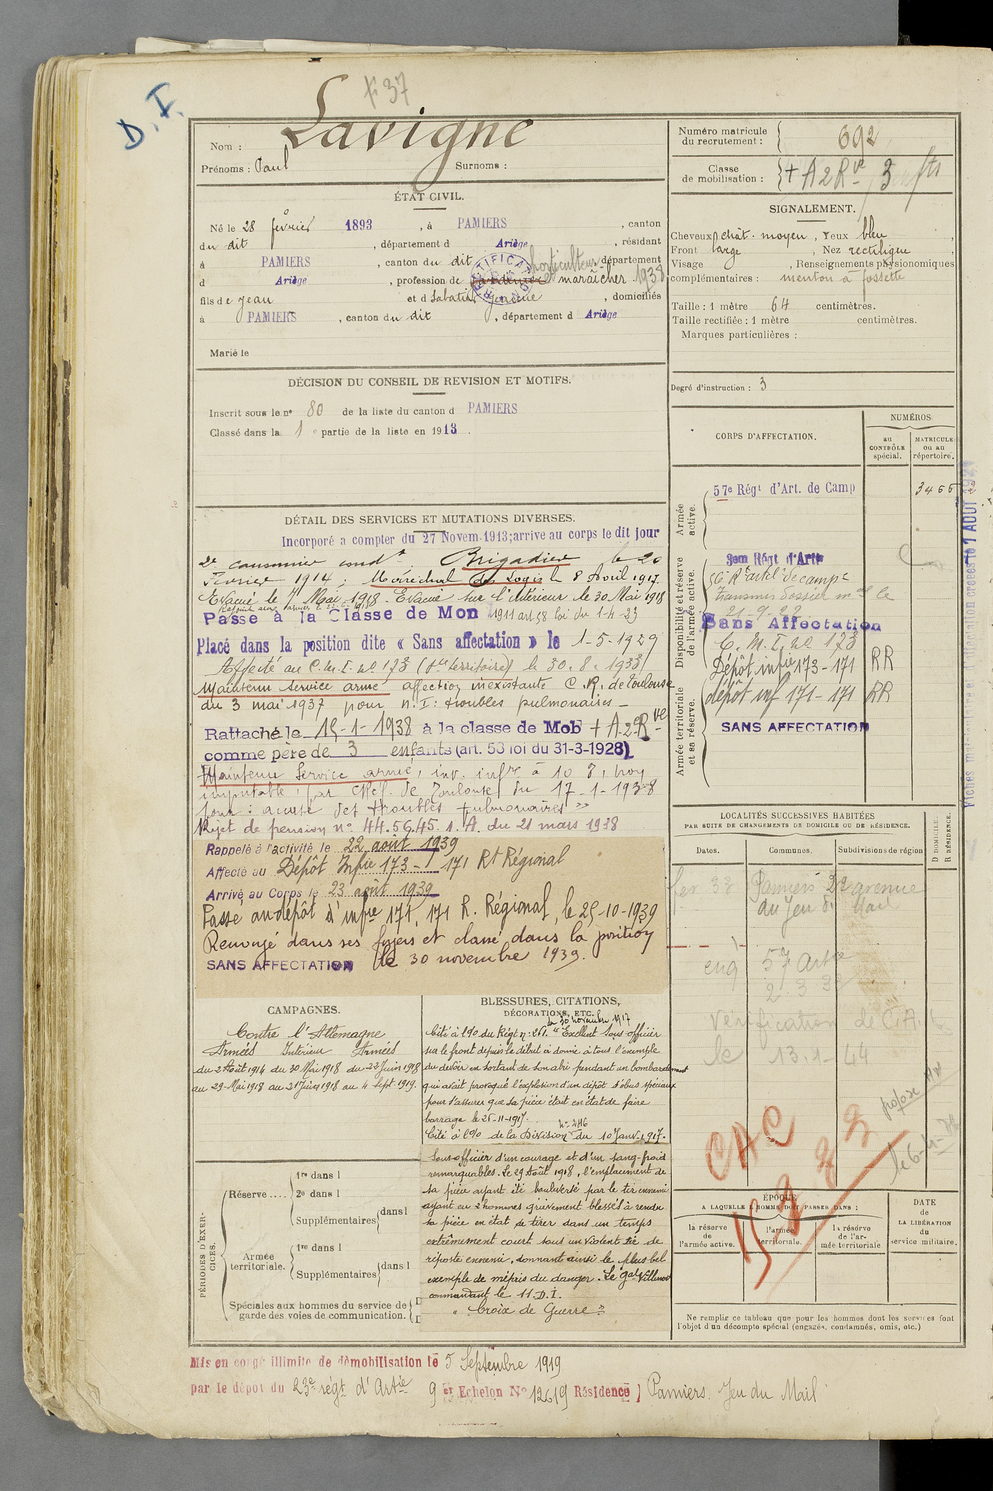 D. I.
F 37
Nom : Lavigne
Prénoms : Paul Surnoms :
ÉTAT CIVIL.
Né le 28 février 1893, à PAMIERS, canton
du dit, département d Ariège, résidant
à PAMIERS, canton du dit, département
d Ariège, profession de maraîcher horticulteur 1938
fils de Jean et d Sabatié, domiciliés
à PAMIERS, canton du dit, département d Ariège
Marié le
DÉCISION DU CONSEIL DE REVISION ET MOTIFS.
Inscrit sous le n° 80 de la liste du canton d PAMIERS
Classé dans la 1 e partie de la liste en 1913.
DÉTAIL DES SERVICES ET MUTATIONS DIVERSES.
Incorporé a compter du 27 Novem. 1913; arrive au corps le dit jour
2e canonnier cond. Brigadier le 20
Février 1914; Maréchal des Logis le 8 Avril 1917.
Evacué le 7 Mai 1918. Evacué sur l'intérieur le 30 Mai 1918
Passe à la Classe de Mon 1911 art 58 loi du 1-4-23
Placé dans la position dite « Sans affectation » le 1-5-1929
Affecté au C. M. I. no 173 (territoire) le 30.8.1933
Maintenu service armé affection inexistante C. R. de Toulouse
du 3 mai 1937 pour N. I: troubles pulmonaires -
Rattaché le 15-1-1938 à la classe de Mob + A2 Rve
comme père de 3 enfants (art. 58 loi du 31-3-1928)
Maintenu Service armé, inv. infre à 10 %, non
imputable, par de Toulouse du 17-1-1938
pour : troubles pulmonaires "
Rejet de pension n° 44.5645. s. A. du 21 mars 1938
Rappelé à l'activité le 22 août 1939
Affecté au Dépôt Infie 173 - 171 Rt Régional
Arrivé au Corps le 23 août 1939
Passe au dépôt d'infie 171, 171 R. Régional, le 25-10-1939
Renvoyé dans ses foyers et classé dans la position
SANS AFFECTATION le 30 novembre 1939.
CAMPAGNES.
Contre l'Allemagne
Armées Intérieur Armées
du 2 Août 1914 du 30 Mai 1918 du 22 Juin 1918
au 29 Mai 1918 au 21 Juin 1918 au 4 Sept. 1919.
BLESSURES, CITATIONS,
DÉCORATIONS, ETC.
du 30 novembre 1917
Cité à l'O/ du Régt n° 261. "Excellent sous-officier
sur le front depuis le début a donné à tous l'exemple
du devoir en sortant de son abri pendant un bombardement
qui avait provoqué l'explosion d'un dépôt d'obus spéciaux
pour s'assurer que sa pièce était en état de faire
barrage le 25-11-1917.
Cité à l'O/ de la Division n° 486 du 10 Janv. 1917.
Sous-officier d'un courage et d'un sang-froid
remarquables. Le 29 Août 1918, l'emplacement de
sa pièce ayant été bouleversé par le tir ennemi
ayant eu 2 hommes grièvement blessés à rendu
sa pièce en état de tirer dans un temps
extrêmement court sous un violent tir de
riposte ennemi, donnant ainsi le plus bel
exemple de mépris du danger. Le Gal
commandant le 11 D.I.
" Croix de Guerre "
PÉRIODES D'EXERCICES.
Réserve .... 1re dans l
2e dans l
Supplémentaires dans l
Armée territoriale. 1re dans l
Supplémentaires dans l
Spéciales aux hommes du service de garde des voies de communication.
Mis en congé illimité de démobilisation le 5 Septembre 1919
par le dépôt du 23e régt d'Artie 9 et Echelon No 12619 Résidence Pamiers. Jeu du Mail
Numéro matricule du recrutement : 692
Classe de mobilisation : + A2 Rve 3 fts
SIGNALEMENT.
Cheveux chât. moyen, Yeux bleu
Front large, Nez rectiligne
Visage, Renseignements physionomiques
complémentaires : menton à fossette
Taille : 1 mètre 64 centimètres.
Taille rectifiée : 1 mètre centimètres.
Marques particulières :
Degré d'instruction : 3
CORPS D'AFFECTATION.
NUMÉROS
au CONTRÔLE spécial.
MATRICULE ou au répertoire.
Armée active.
57e Régt d'Art. de Camp
Disponibilité et réserve de l'armée active.
3em Régt d'Artie
Sans Affectation
C. M. I. no 173
Dépôt infie 173-171 RR
dépôt inf 171-171 RR
SANS AFFECTATION
Armée territoriale et sa réserve.
LOCALITÉS SUCCESSIVES HABITÉES
PAR SUITE DE CHANGEMENTS DE DOMICILE OU DE RÉSIDENCE.
Dates. Communes. Subdivisions de région
D DOMICILE. R RÉSIDENCE.
Pamiers 22 avenue
du Jeu du Mail
57 Artie
Vérification de
le 13.1-44
CAC
ÉPOQUE
A LAQUELLE L'HOMME DOIT PASSER DANS :
la réserve de l'armée active.
l'armée territoriale.
la réserve de l'armée territoriale
DATE DE LA LIBÉRATION du service militaire.
Ne remplir ce tableau que pour les hommes dont les services font
l'objet d'un décompte spécial (engagés, condamnés, omis, etc.)